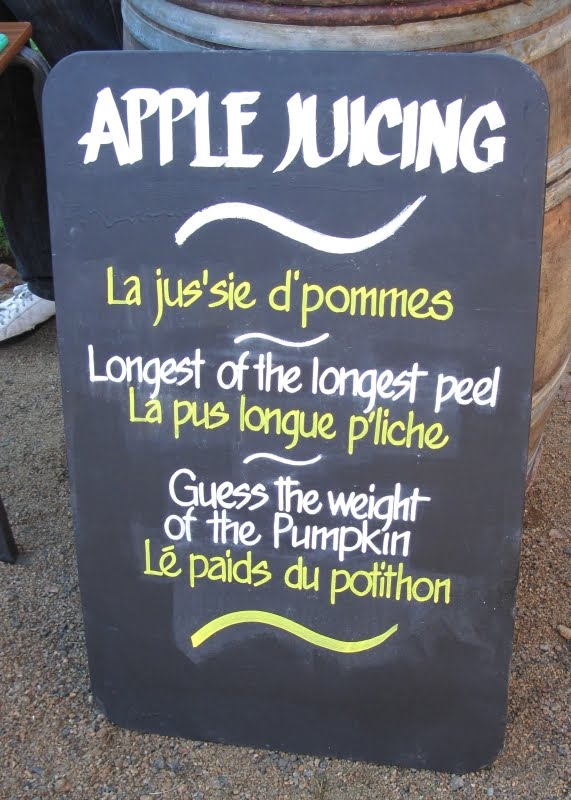 APPLE JUICING
La jus'sie d'pommes
Longest of the longest peel
La pus longue p'liche
Guess the weight
of the Pumpkin
Lé paids du potithon